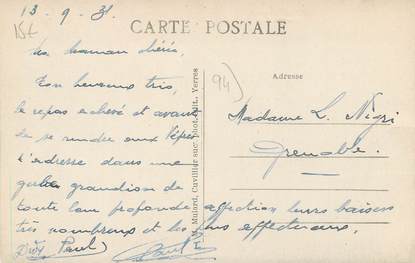 13-9-31
15€
CARTE POSTALE
Ma maman chérie,
Ton heureux trio,
le repas achevé et avant
de se rendre aux Vêpres
t'adresse dans une
gerbe grandiose de
toute leur profonde affection leurs baisers
très nombreux et les plus affectueux.
Paul
Adresse
94)
Madame L. Négri
Grenoble.
M. Mulard, Cuvillier succ. phot. édit., Yerres